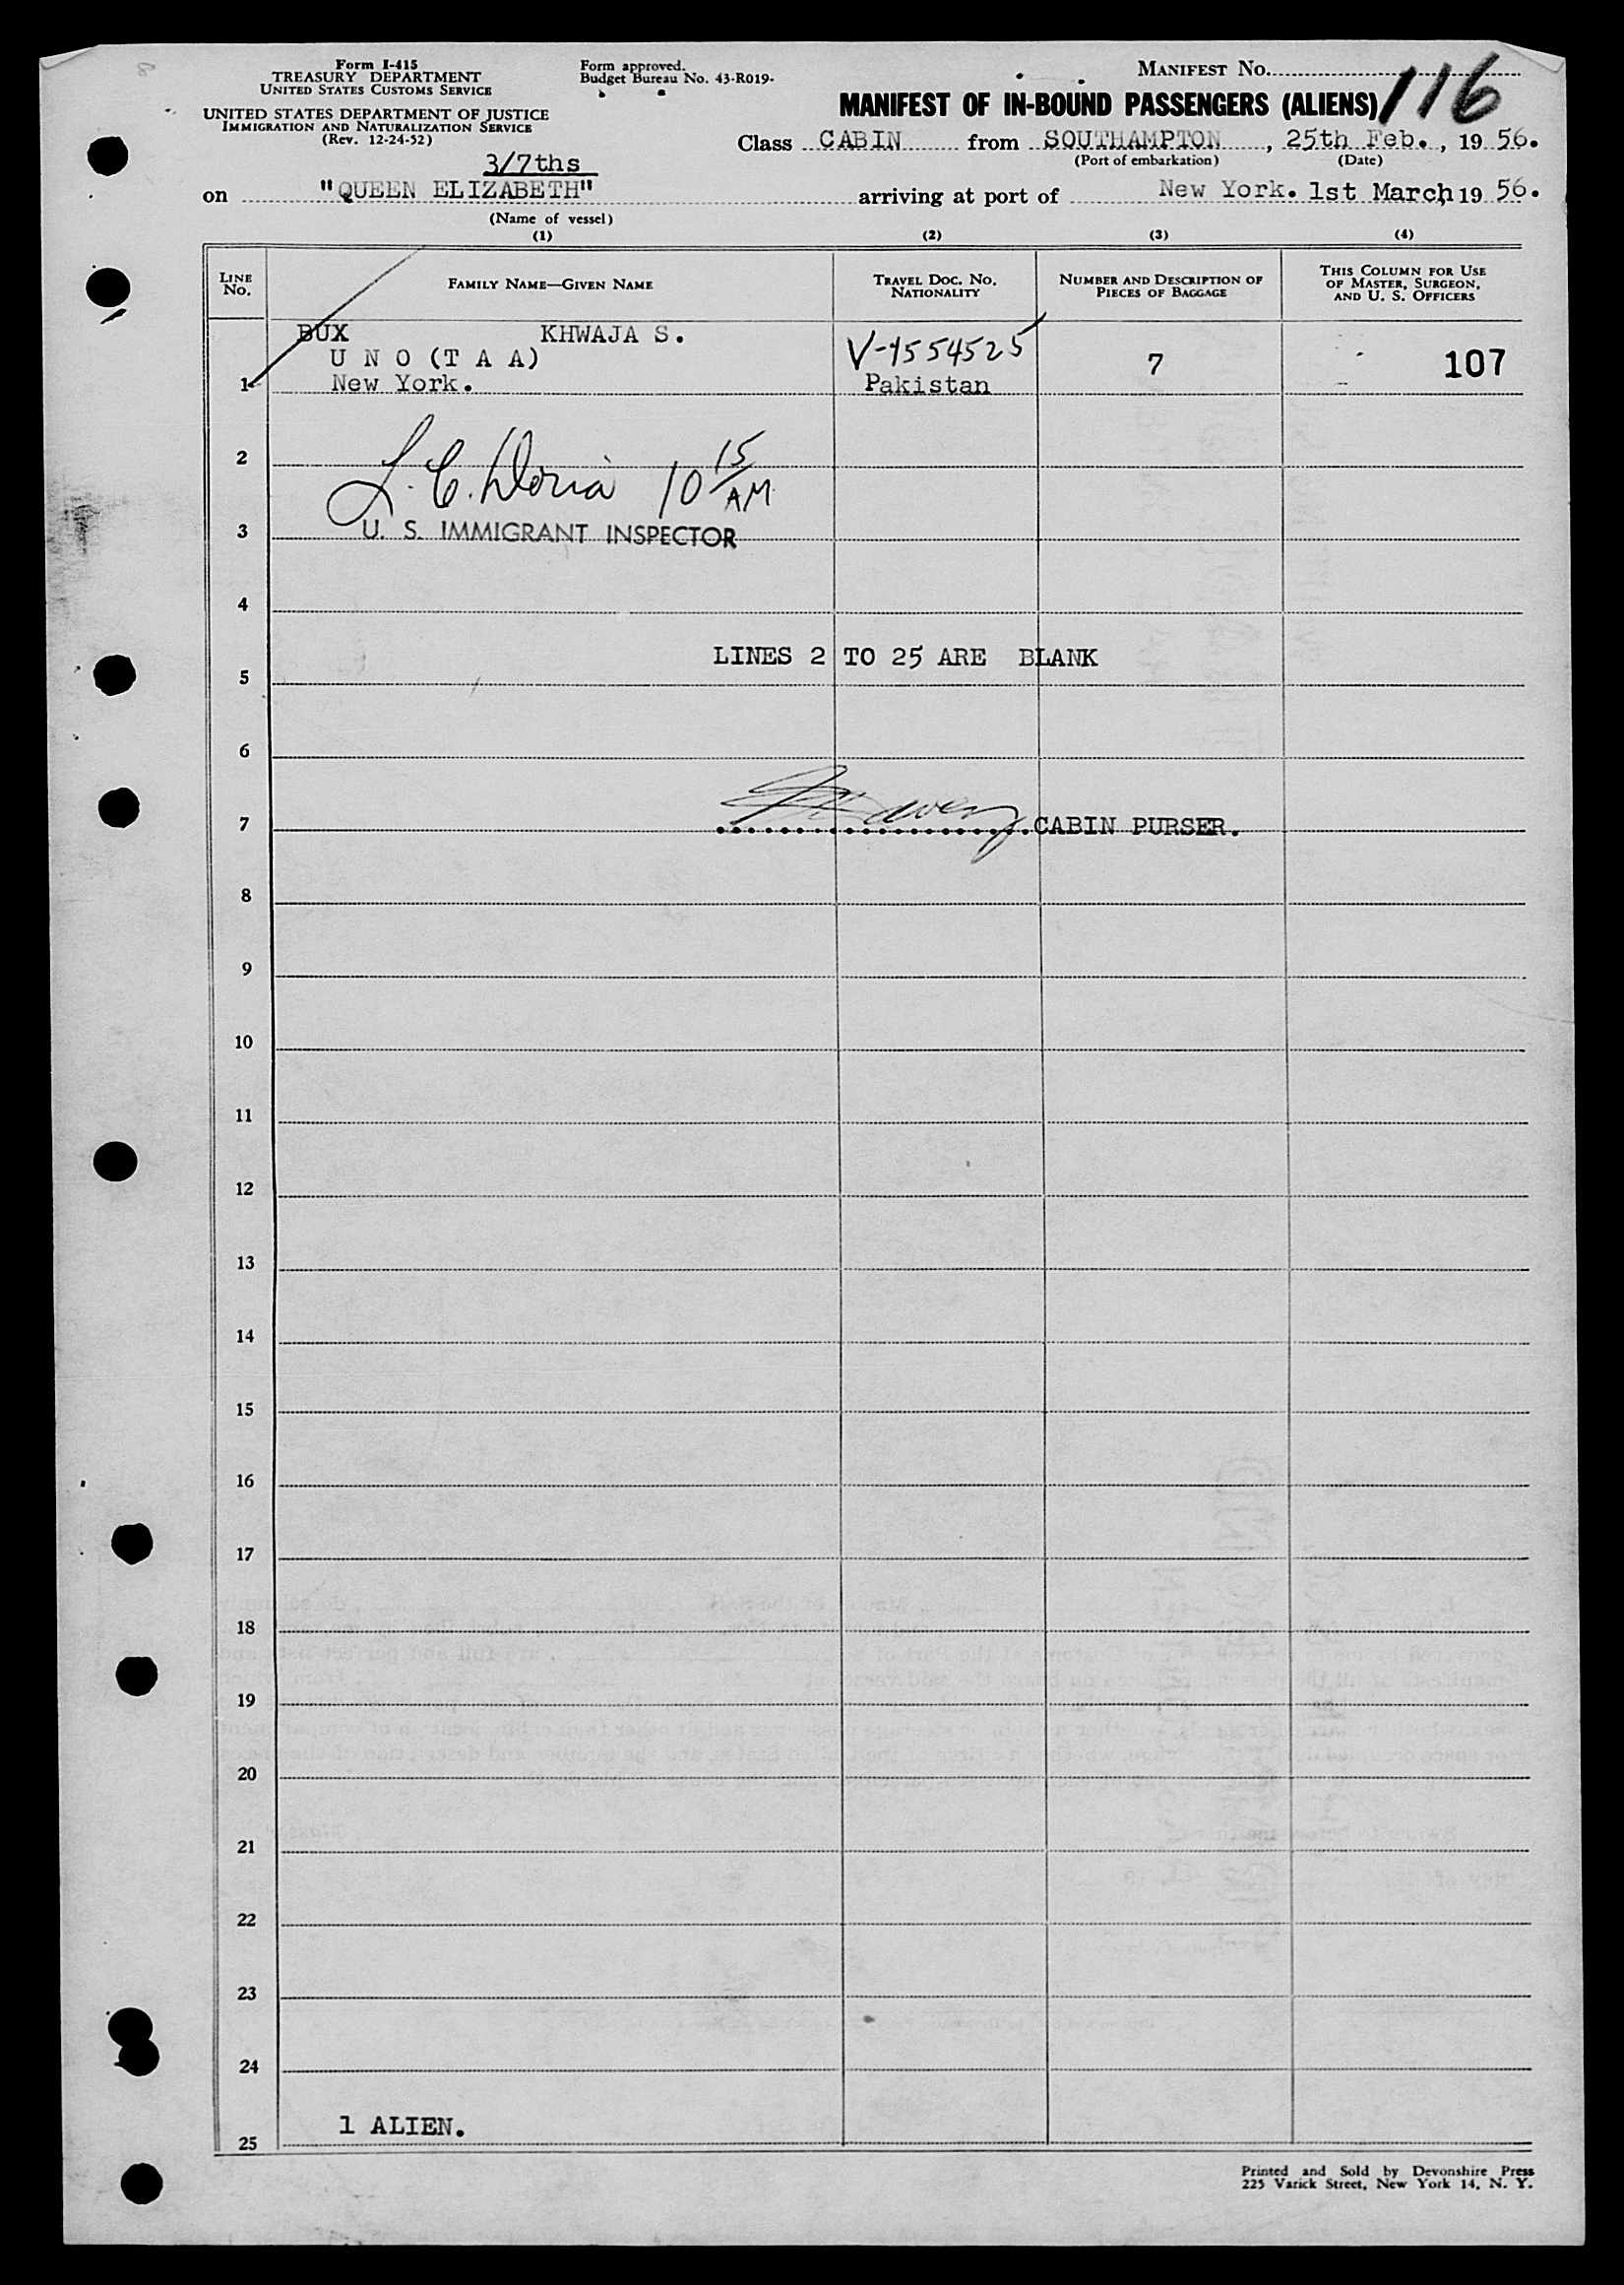 Form I-415
TREASURY DEPARTMENT
UNITED STATES CUSTOMS SERVICE
UNITED STATES DEPARTMENT OF JUSTICE
IMMIGRATION AND NATURALIZATION SERVICE
(Rev. 12-24-52)
Form approved.
Budget Bureau No. 43-R019.
MANIFEST No. 116
MANIFEST OF IN-BOUND PASSENGERS (ALIENS)
Class CABIN from SOUTHAMPTON, 25th Feb., 19 56.
(Port of embarkation) (Date)
3/7ths
on "QUEEN ELIZABETH" arriving at port of New York. 1st March, 19 56.
(Name of vessel)
(1) (2) (3) (4)
LINE No.
FAMILY NAME—GIVEN NAME
TRAVEL DOC. NO. NATIONALITY
NUMBER AND DESCRIPTION OF PIECES OF BAGGAGE
THIS COLUMN FOR USE OF MASTER, SURGEON, AND U. S. OFFICERS
BUX KHWAJA S.
U N O (T A A) V-1554525 7 107
1 New York. Pakistan
2
L. C. Doria 10 15 AM
3 U. S. IMMIGRANT INSPECTOR
4
LINES 2 TO 25 ARE BLANK
5
6
7 CABIN PURSER.
8
9
10
11
12
13
14
15
16
17
18
19
20
21
22
23
24
1 ALIEN.
25
Printed and Sold by Devonshire Press
225 Varick Street, New York 14, N. Y.